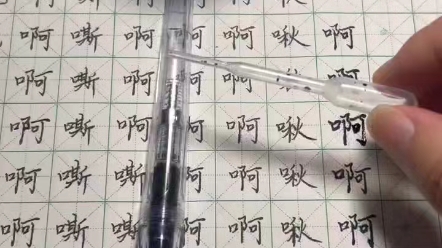 啊 嘶 啊 啊 啊 啾 啊
啊 嘶 啊 啊 啊 啾 啊
啊 嘶 啊 啊 啊 啾 啊
啊 嘶 啊 啊 啊 啾 啊
啊 嘶 啊 啊 啊 啾 啊